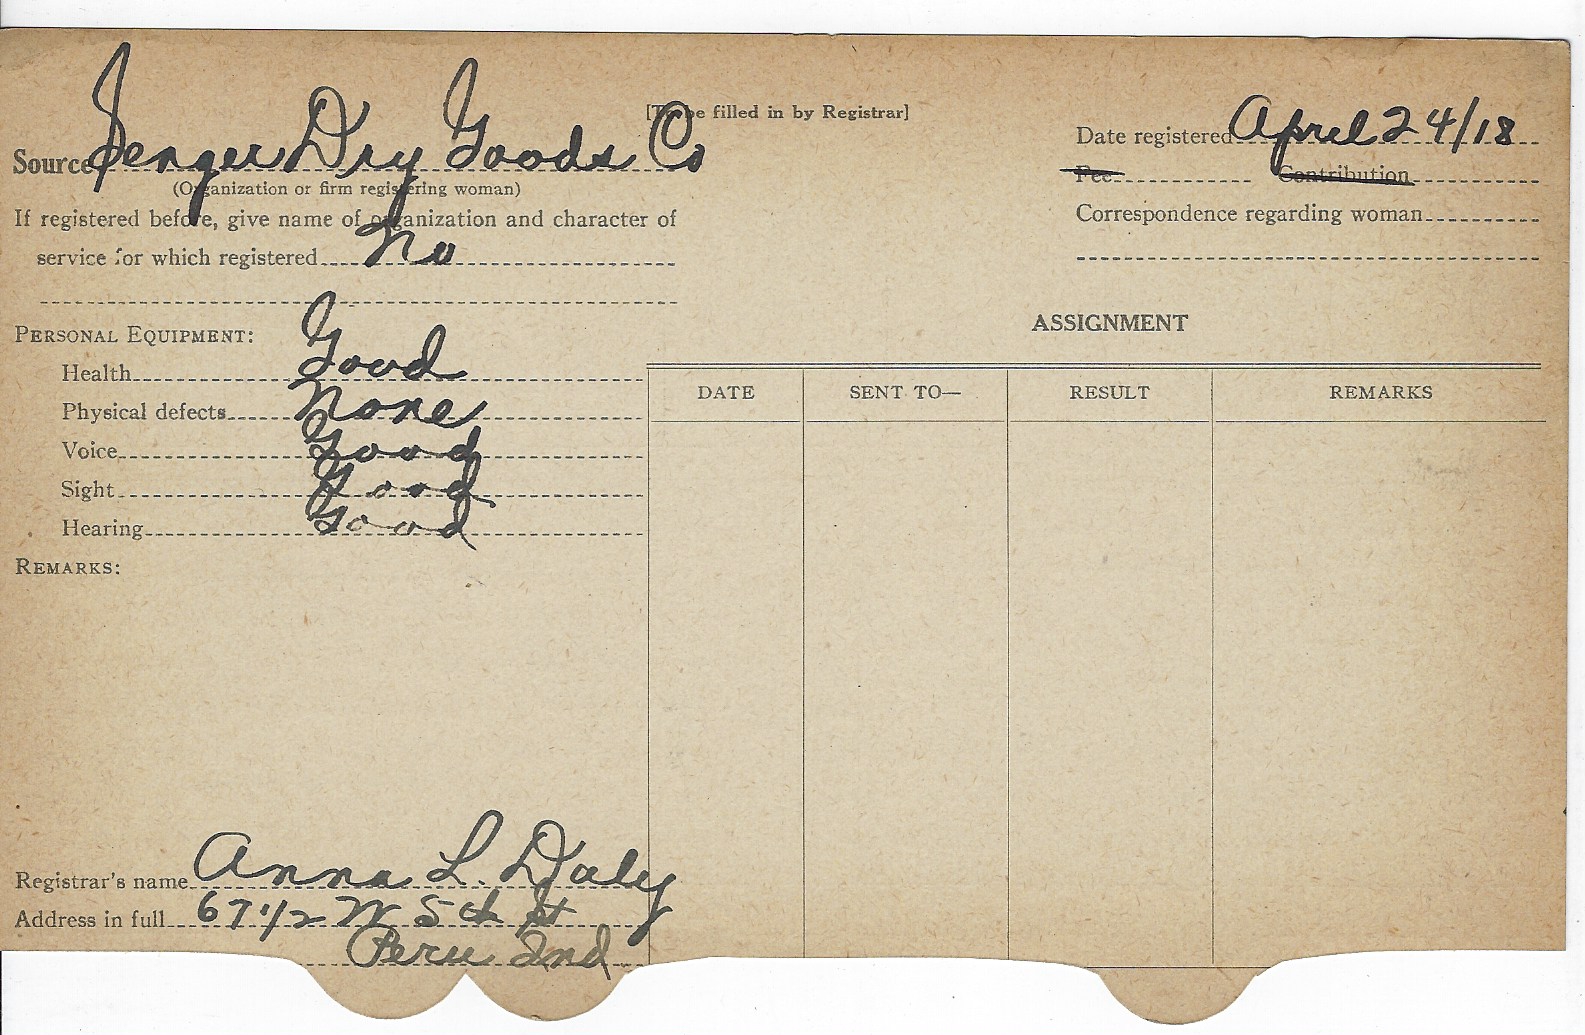 [To be filled in by Registrar]
Source Senger Dry Goods Co
(Organization or firm registering woman)
If registered before, give name of organization and character of
service for which registered No
Date registered April 24/18
Fee Contribution
Correspondence regarding woman
PERSONAL EQUIPMENT:
Health Good
Physical defects None
Voice Good
Sight Good
Hearing Good
REMARKS:
ASSIGNMENT
DATE SENT TO— RESULT REMARKS
Registrar's name Anna L. Daly
Address in full 67 1/2 W 5th St
Peru Ind